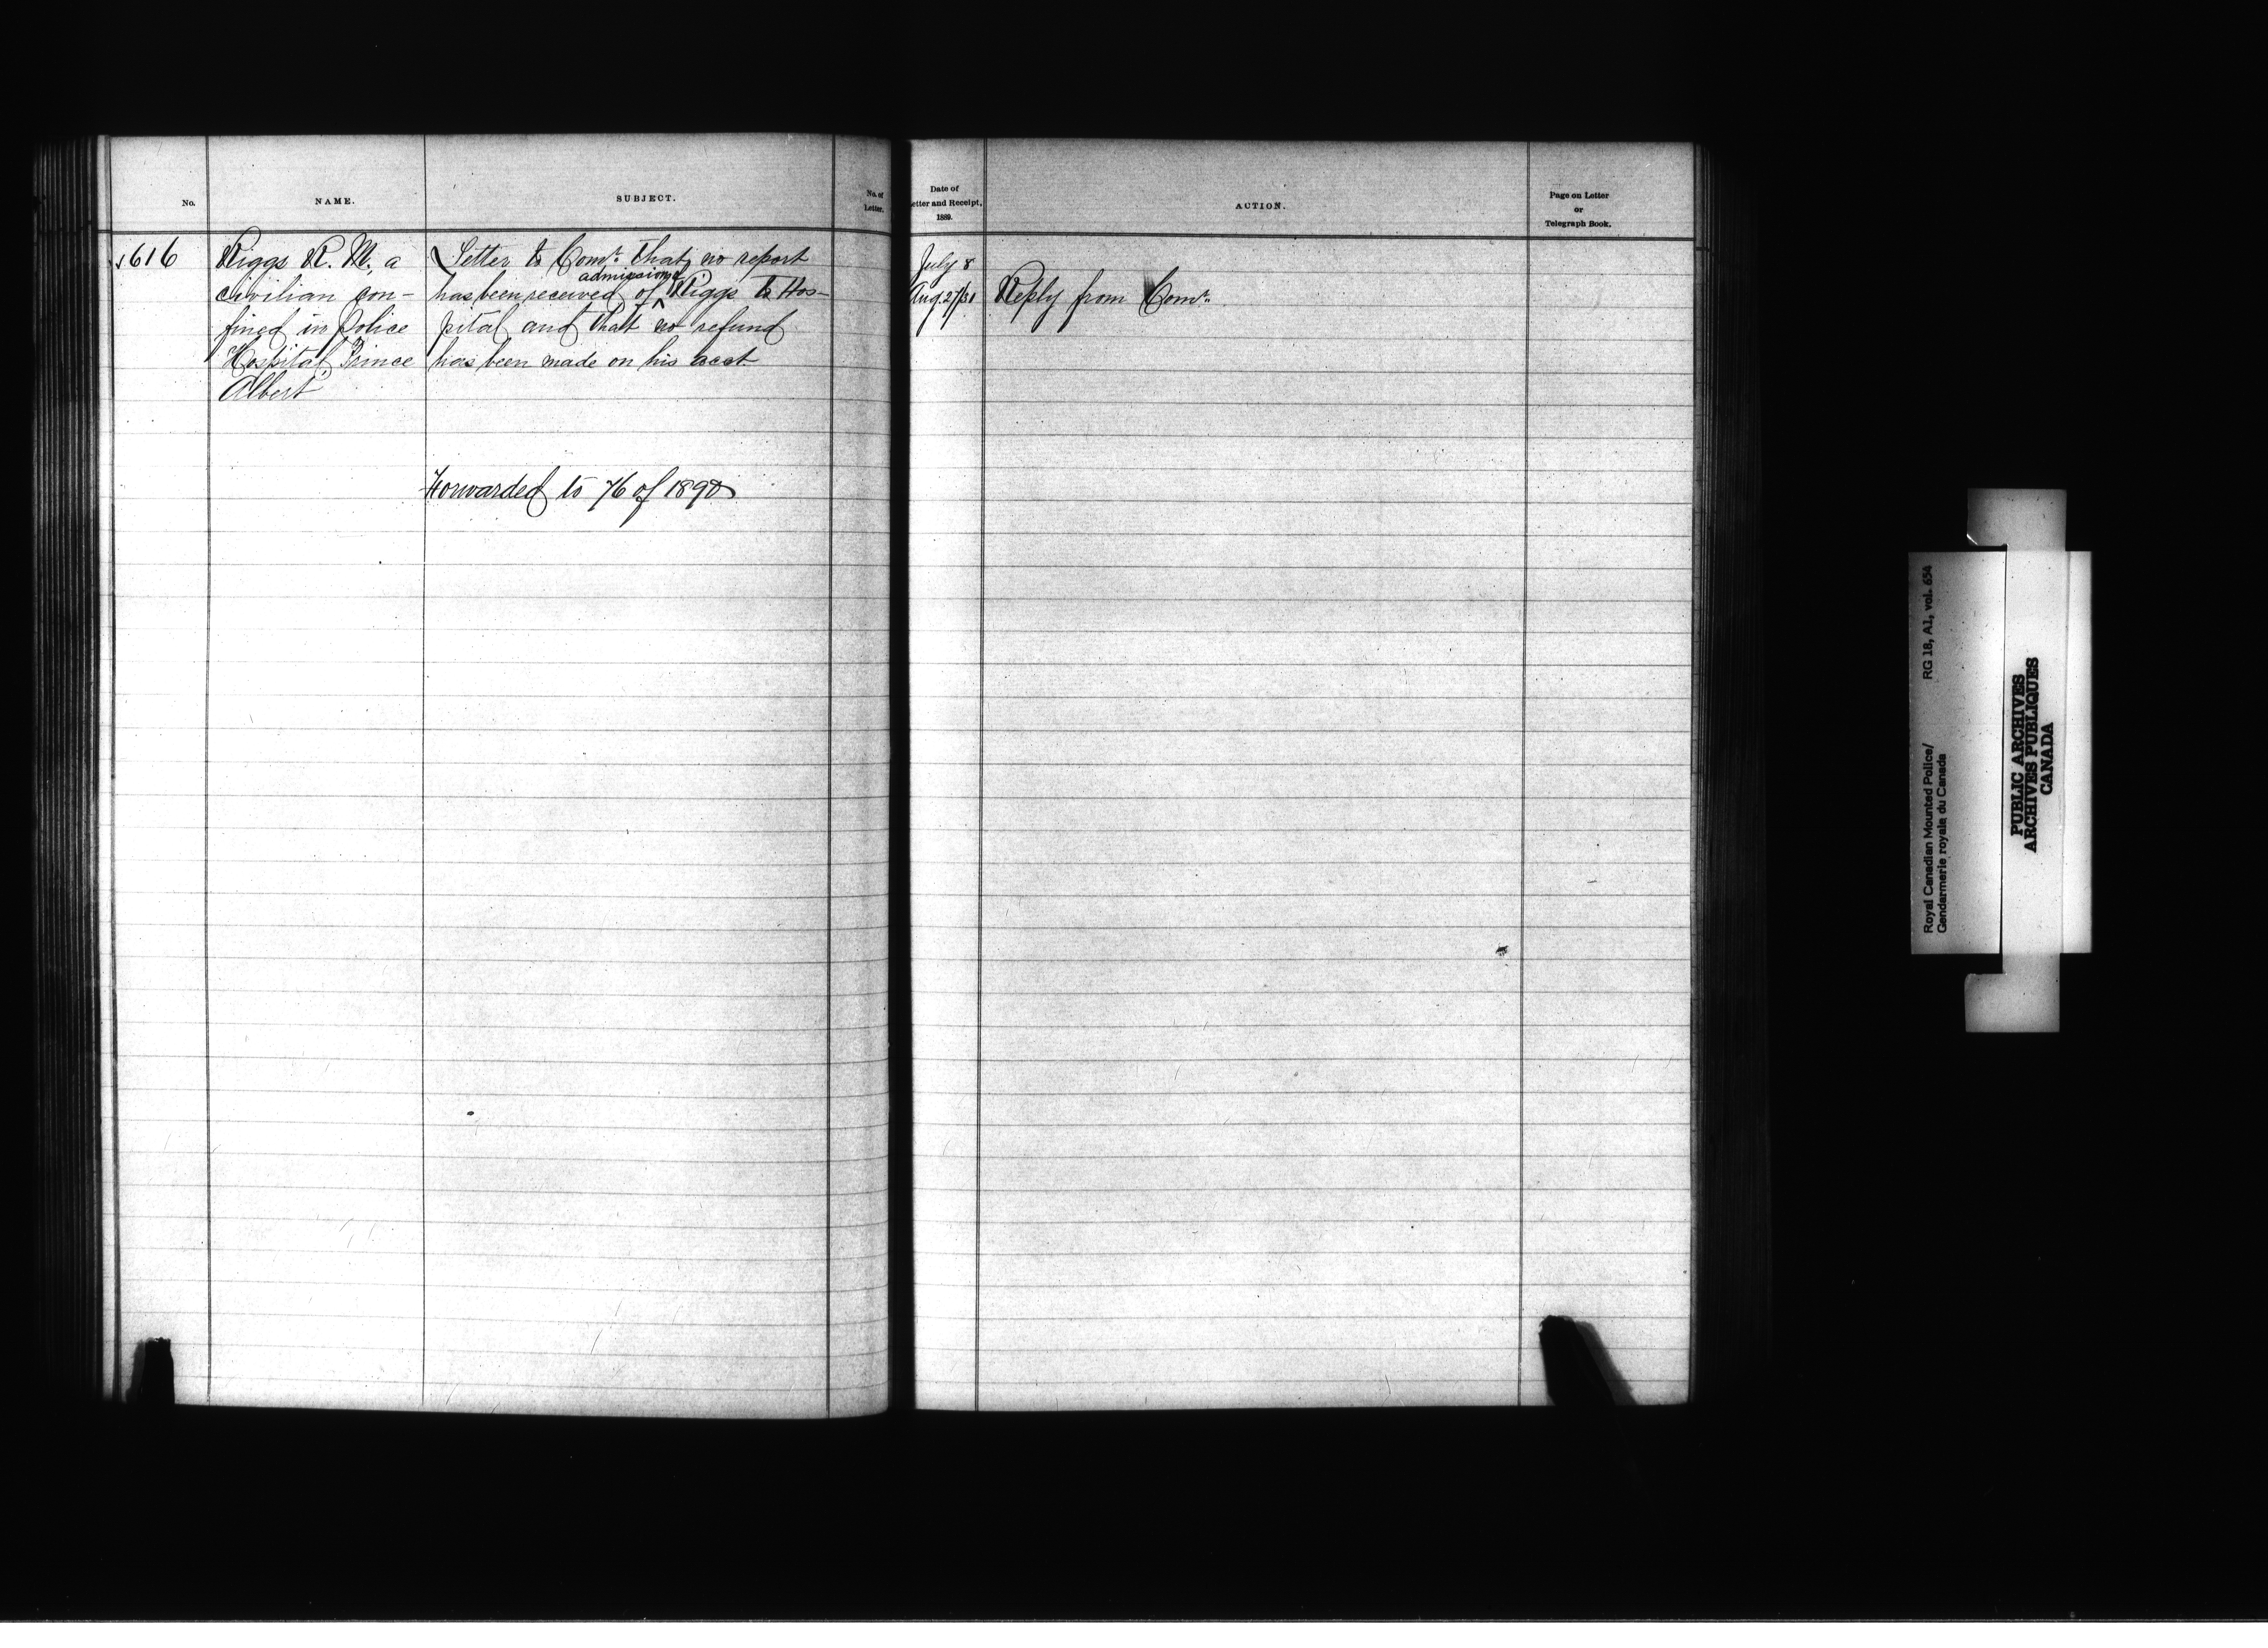 No.
NAME.
SUBJECT.
No. of
Letter.
616
Riggs R. M., a
civilian con-
fined in Police
Hospital, Prince
Albert
Letter to Comr. that no report
admission
has been received of Riggs to Hos-
pital and that no refund
has been made on his acct.
Forwarded to 76 of 1890
Date of
Letter and Receipt,
1889.
ACTION.
Page on Letter
or
Telegraph Book.
July 8
Aug. 27/31
Reply from Comr.
Royal Canadian Mounted Police/
Gendarmerie royale du Canada
RG 18, A1, vol. 654
PUBLIC ARCHIVES
ARCHIVES PUBLIQUES
CANADA